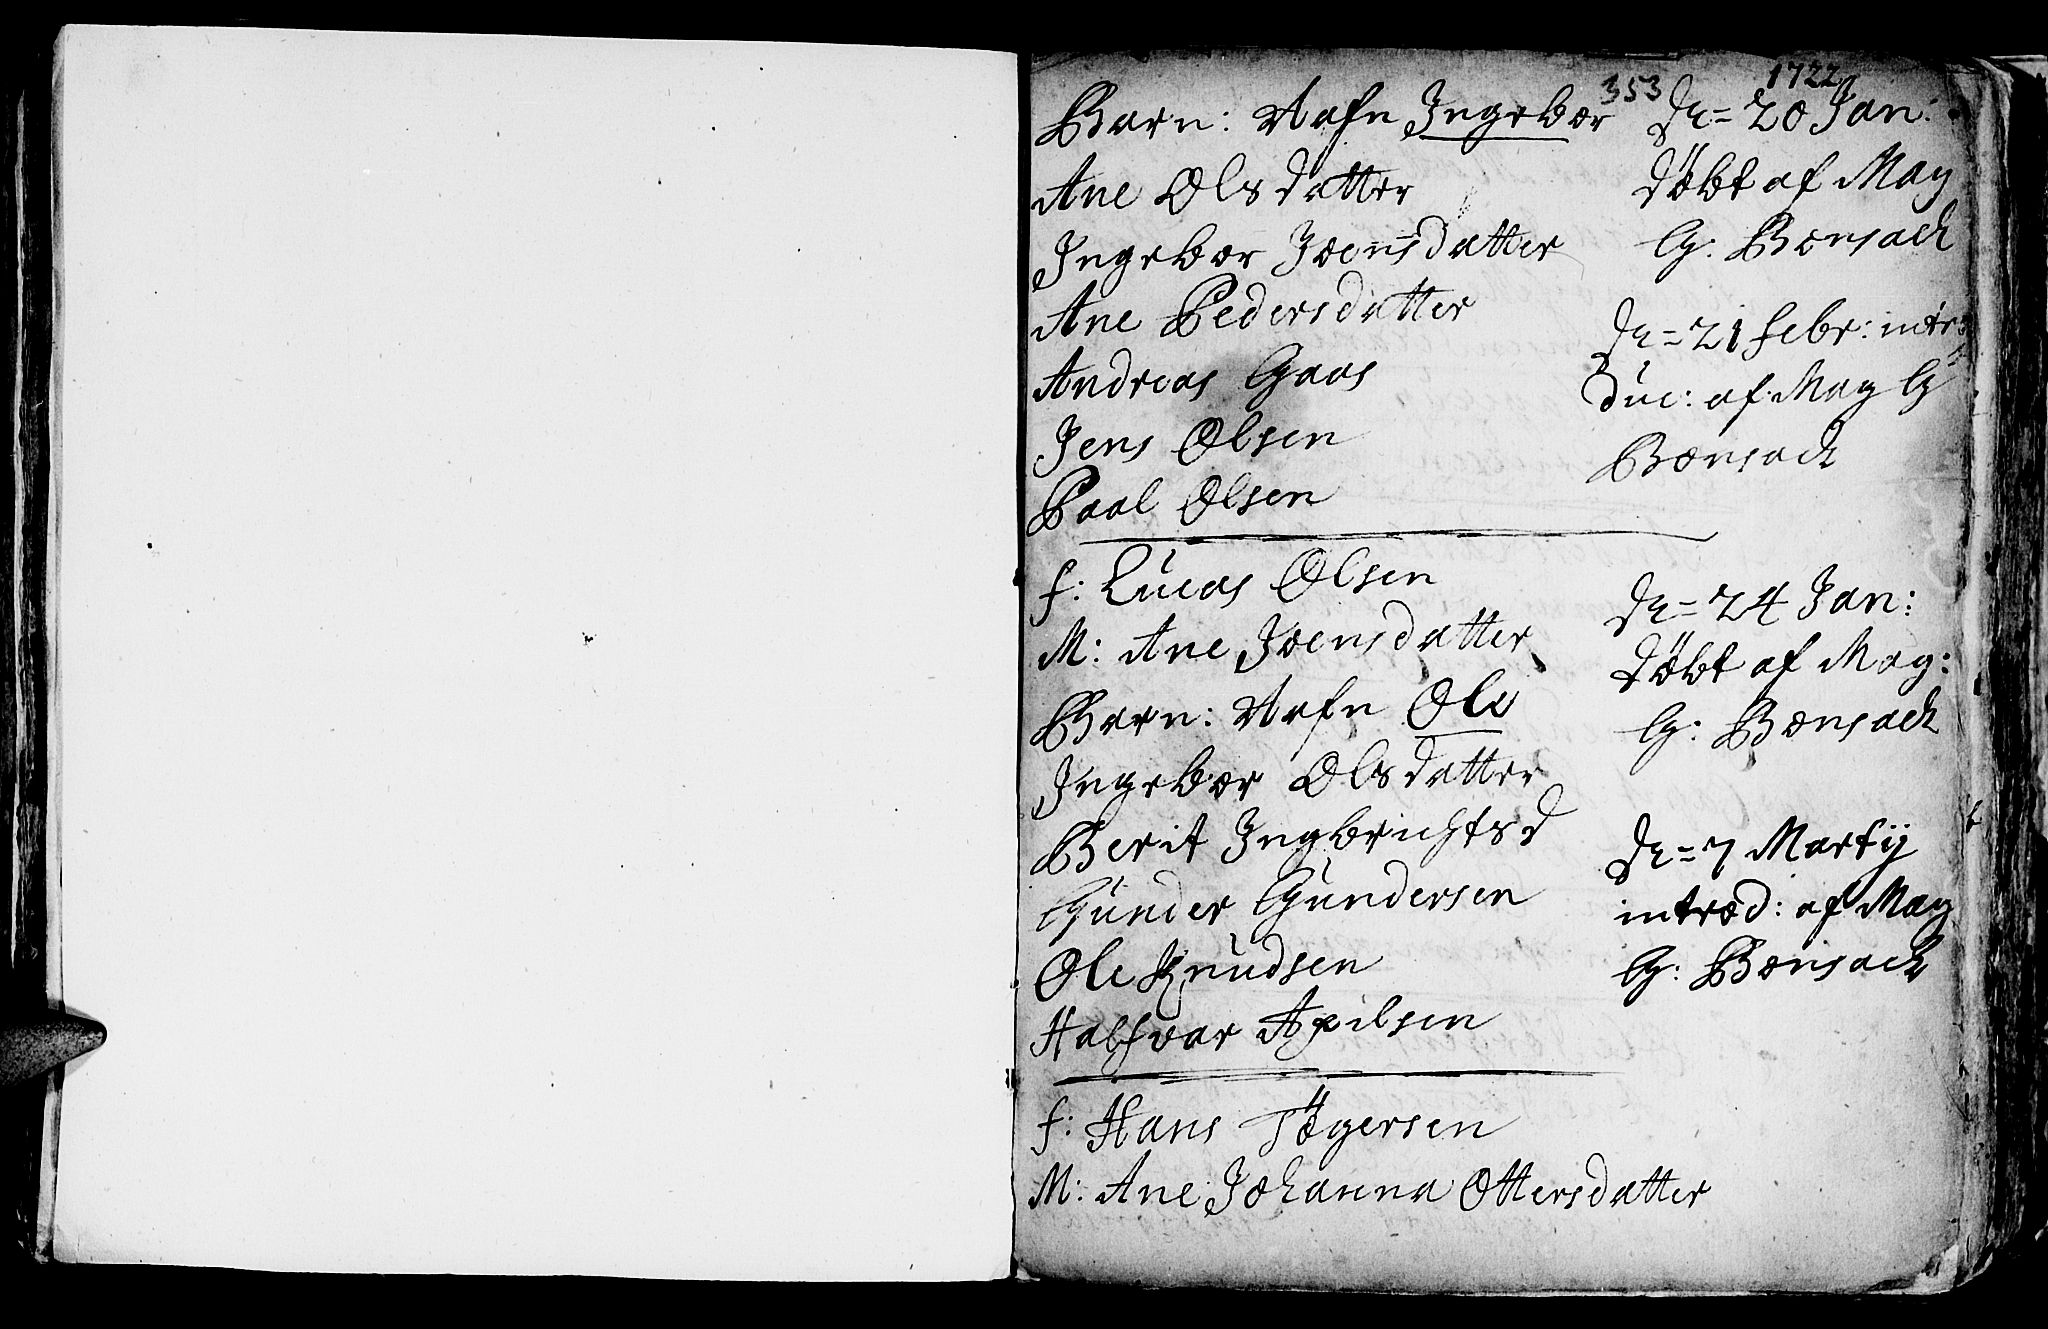 353
1722
Barn: Nafn Ingebor
Ane Olsdatter
Ingebor Joensdatter
Ane Pedersdatter
Andreas Gaas
Jens Olsen
Paal Olsen
D: = 20 Jan:
döbt af Mag
G: Bornsack
D: = 21 febr: intro
duc: af Mag G:
Bornsack
f: Lucas Olsen
M: Ane Joensdatter
Barn: Nafn Ole
Ingebor Olsdatter
Berit Ingbrichtsd
Gunder Gundersen
Ole Knudsen
Halfvor Axilsen
D: = 24 Jan:
döbt af Mag:
G: Bornsack
D: = 7 Martij
introd: af Mag
G: Bornsack
f: Hans Tögersen
M: Ane Johanna Ottersdatter